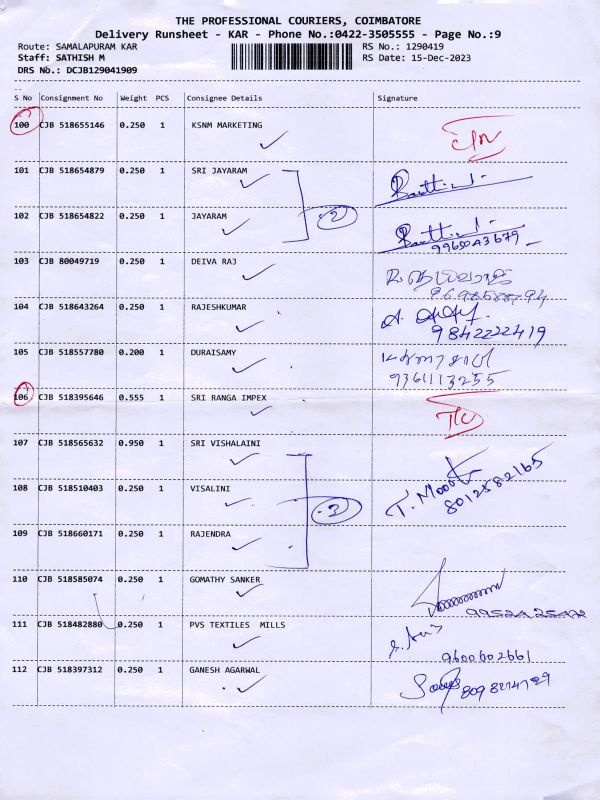 THE PROFESSIONAL COURIERS, COIMBATORE
Delivery Runsheet - KAR - Phone No.:0422-3505555 - Page No.:9
Route: SAMALAPURAM KAR RS No.: 1290419
Staff: SATHISH M RS Date: 15-Dec-2023
DRS No.: DCJB129041909
S No Consignment No Weight PCS Consignee Details Signature
100 CJB 518655146 0.250 1 KSNM MARKETING
101 CJB 518654879 0.250 1 SRI JAYARAM
102 CJB 518654822 0.250 1 JAYARAM
2
9965043679
103 CJB 80049719 0.250 1 DEIVA RAJ
104 CJB 518643264 0.250 1 RAJESHKUMAR
9842222419
105 CJB 518557780 0.200 1 DURAISAMY
9361113255
106 CJB 518395646 0.555 1 SRI RANGA IMPEX
107 CJB 518565632 0.950 1 SRI VISHALAINI
108 CJB 518510403 0.250 1 VISALINI
3
8012582165
109 CJB 518660171 0.250 1 RAJENDRA
110 CJB 518585074 0.250 1 GOMATHY SANKER
111 CJB 518482880 0.250 1 PVS TEXTILES MILLS
9600602661
112 CJB 518397312 0.250 1 GANESH AGARWAL